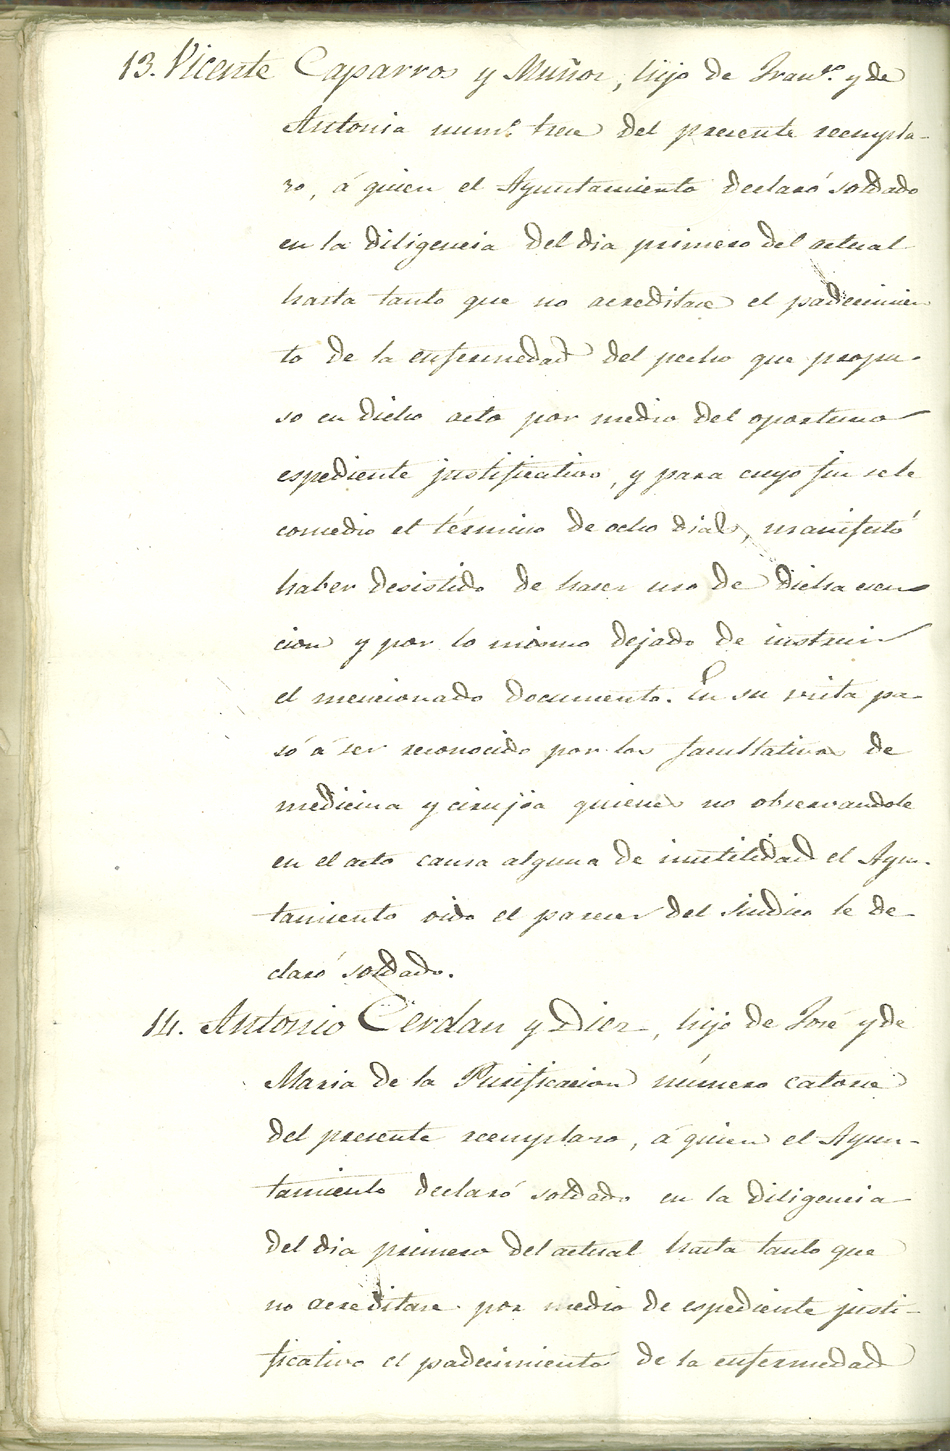 13. Vicente Caparros y Muñoz, hijo de Fran.co y de
Antonia num.o trece del presente reempla-
zo, á quien el Ayuntamiento declaró soldado
en la diligencia del dia primero del actual
hasta tanto que no acreditase el padecimien
to de la enfermedad del pecho que propu-
so en dicho acto por medio del oportuno
espediente justificativo, y para cuyo fin se le
concedio el término de ocho dias, manifestó
haber desistido de hacer uso de dicha exen
cion y por lo mismo dejado de instruir
el mencionado documento. En su vista pa-
só á ser reconocido por los facultativos de
medicina y cirujia quienes no observandole
en el acto causa alguna de inutilidad el Ayun-
tamiento oido el parecer del Sindico le de-
claró soldado.
14. Antonio Cerdan y Diez, hijo de José y de
Maria de la Purificacion número catorce
del presente reemplazo, á quien el Ayun-
tamiento declaró soldado en la diligencia
del dia primero del actual hasta tanto que
no acreditase por medio de espediente justi-
ficativo el padecimiento de la enfermedad